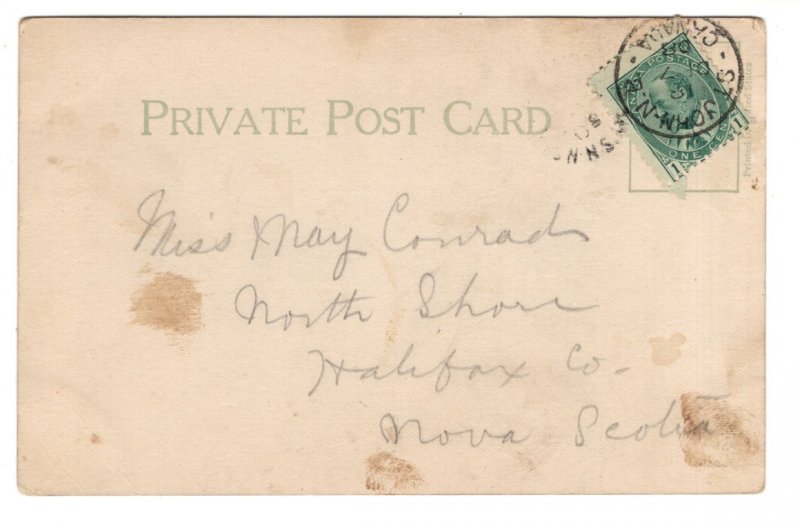 PRIVATE POST CARD
ST JOHN-N.B.
CANADA
POSTA
ONE CEN
1 1
Miss May Conrad
North Shore
Halifax Co-
Nova Scotia